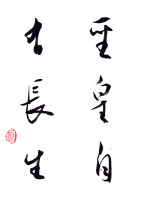 聖皇自
有長生